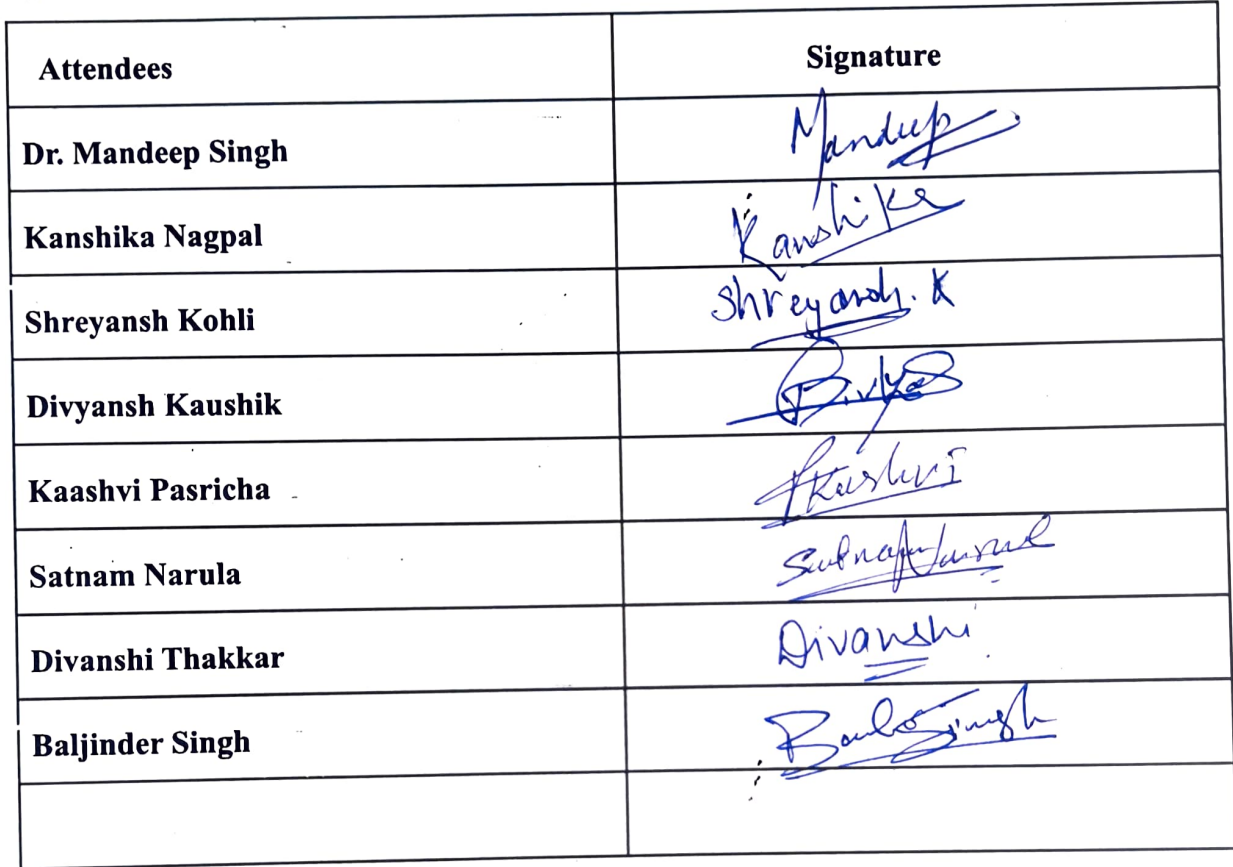 Attendees Signature
Dr. Mandeep Singh Mandeep
Kanshika Nagpal Kanshika
Shreyansh Kohli Shreyansh. K
Divyansh Kaushik
Kaashvi Pasricha Kashvi
Satnam Narula Satnam Narula
Divanshi Thakkar Divanshi
Baljinder Singh Singh